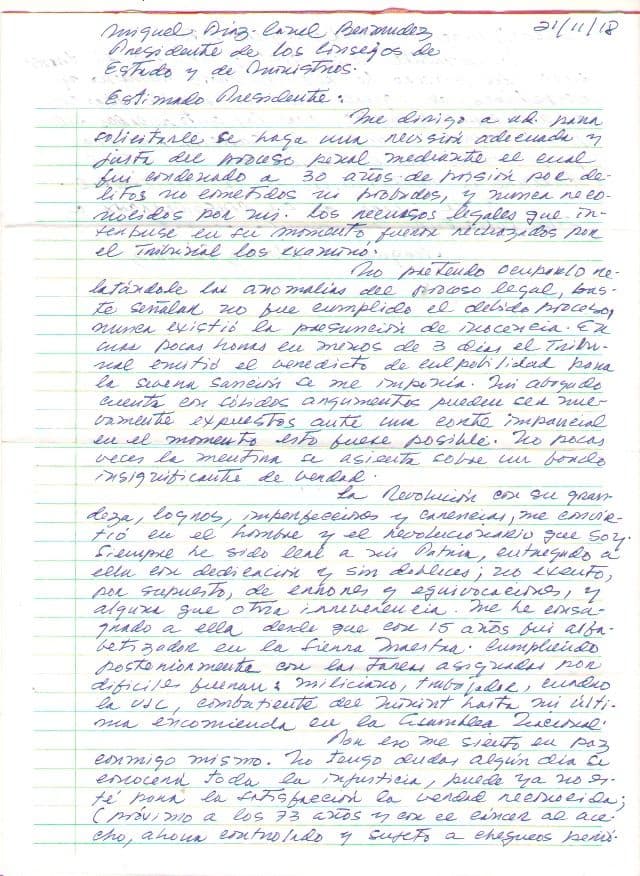 Miguel Díaz-Canel Bermudez 21/11/18
Presidente de los Consejos de
Estado y de Ministros.
Estimado Presidente:
Me dirijo a ud. para
solicitarle se haga una revisión adecuada y
justa del proceso penal mediante el cual
fui condenado a 30 años de prisión por de-
litos no cometidos ni probados, y nunca reco-
nocidos por mi. Los recursos legales que in-
terpuse en su momento fueron rechazados por
el Tribunal los examinó.
No pretendo ocuparlo re-
latándole las anomalías del proceso legal, bas-
te señalar no fue cumplido el debido proceso,
nunca existió la presunción de inocencia. En
unas pocas horas en menos de 3 días el Tribu-
nal emitió el veredicto de culpabilidad para
la severa sanción se me imponía. Mi abogado
cuenta con sólidos argumentos pueden ser nue-
vamente expuestos ante una corte imparcial
en el momento esto fuese posible. No pocas
veces la mentira se asienta sobre un fondo
insignificante de verdad.
La Revolución con su gran-
deza, logros, imperfecciones y carencias, me convir-
tió en el hombre y el revolucionario que soy.
Siempre he sido leal a mi Patria, entregado a
ella con dedicación y sin dobleces; no exento,
por supuesto, de errores y equivocaciones, y
alguna que otra irreverencia. Me he consa-
grado a ella desde que con 15 años fui alfa-
betizador en la Sierra Maestra. Cumpliendo
posteriormente con las tareas asignadas por
difíciles fueran: miliciano, trabajador, cuadro
la UJC, combatiente del Minint hasta mi últi-
ma encomienda en la Asamblea Nacional.
Por eso me siento en paz
conmigo mismo. No tengo dudas algún día se
conocerá toda la injusticia, puede ya no es-
té para la satisfacción la verdad reconocida;
(próximo a los 73 años y con el cáncer al ace-
cho, ahora controlado y sujeto a chequeos perió-